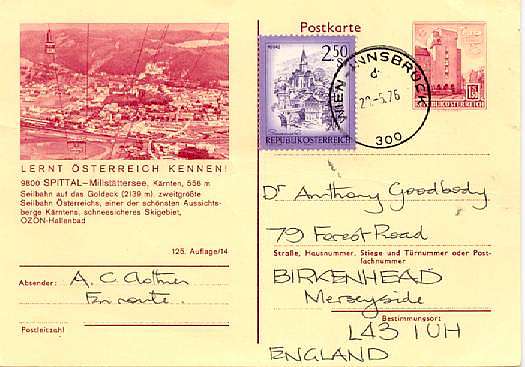 Postkarte
2.50
REPUBLIK ÖSTERREICH
REPUBLIK ÖSTERREICH
WIEN-INNSBRUCK
-5.76
300
LERNT ÖSTERREICH KENNEN!
9800 SPITTAL–Millstättersee, Kärnten, 556 m
Seilbahn auf das Goldeck (2139 m), zweitgrößte
Seilbahn Österreichs, einer der schönsten Aussichts-
berge Kärntens, schneesicheres Skigebiet,
OZON-Hallenbad
125. Auflage/14
Absender: A. C.
En route.
Postleitzahl
Dr Anthony Goodbody
79 Forest Road
Straße, Hausnummer, Stiege und Türnummer oder Post-
fachnummer
BIRKENHEAD
Merseyside
Bestimmungsort
L43 1UH
ENGLAND